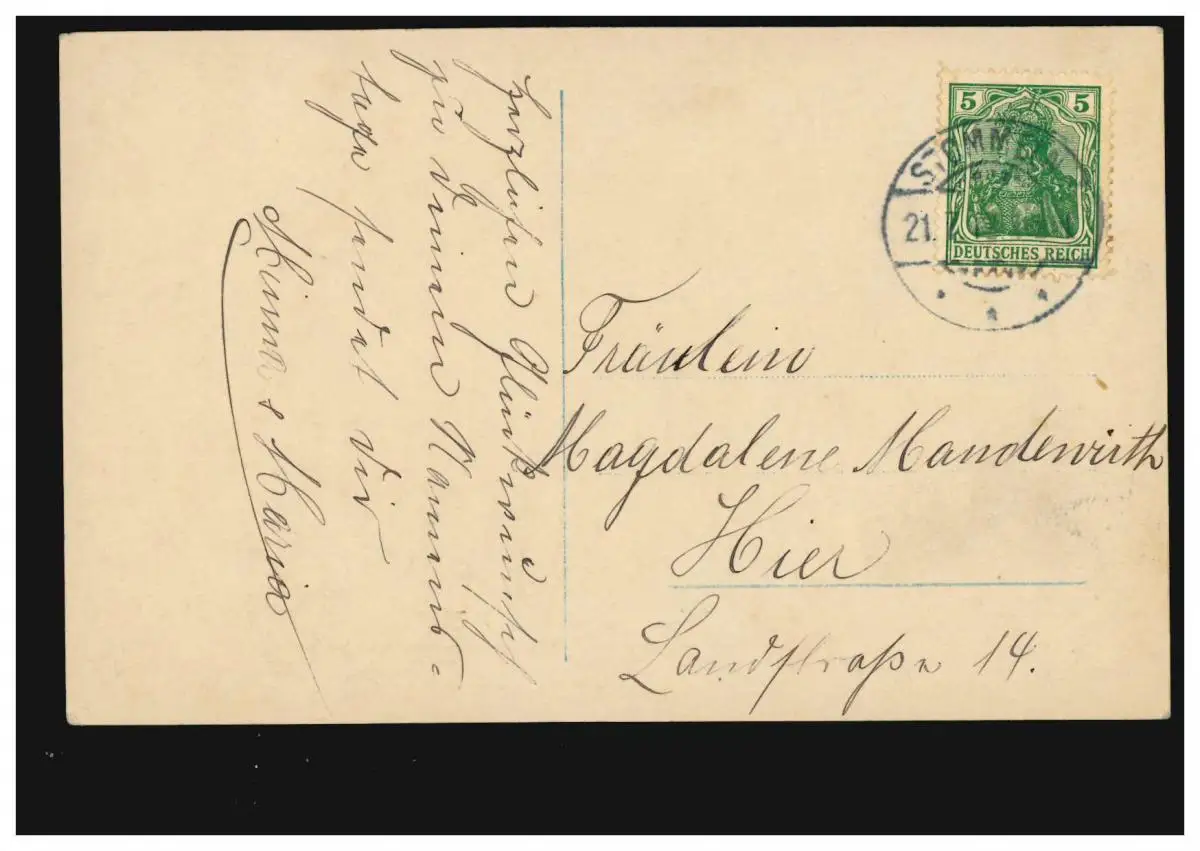 Herzlichen Glückwunsch
zu Deinem Namens-
tage sendet dir
Maria
5 5
DEUTSCHES REICH
STOMMELN
21.
Fräulein
Magdalene Mandewirth
Hier
Landstraße 14.